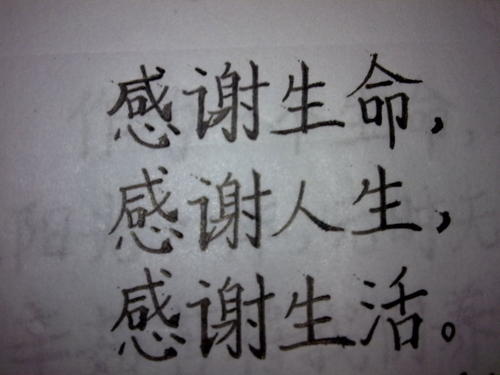 感谢生命，
感谢人生，
感谢生活。